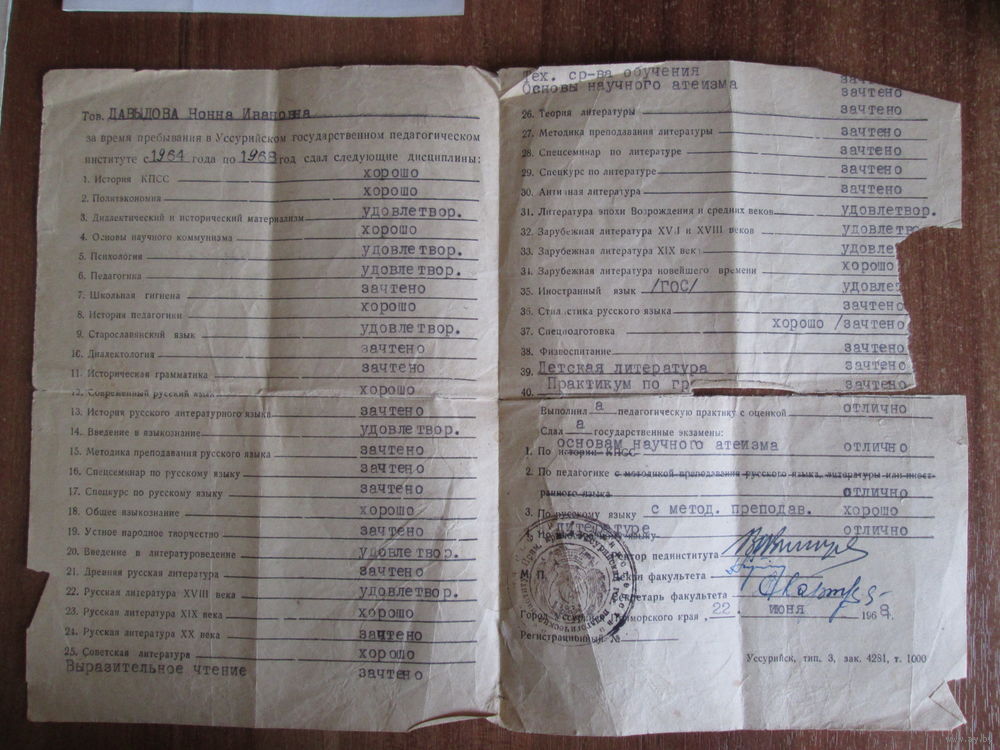 Тов. ДАВЫДОВА Нонна Ивановна
за время пребывания в Уссурийском государственном педагогическом
институте с 1964 года по 1968 год сдал следующие дисциплины:
1. История КПСС хорошо
2. Политэкономия хорошо
3. Диалектический и исторический материализм удовлетвор.
4. Основы научного коммунизма хорошо
5. Психология удовлетвор.
6. Педагогика удовлетвор.
7. Школьная гигиена зачтено
8. История педагогики хорошо
9. Старославянский язык удовлетвор.
10. Диалектология зачтено
11. Историческая грамматика зачтено
12. Современный русский язык хорошо
13. История русского литературного языка зачтено
14. Введение в языкознание удовлетвор.
15. Методика преподавания русского языка зачтено
16. Спецсеминар по русскому языку зачтено
17. Спецкурс по русскому языку зачтено
18. Общее языкознание хорошо
19. Устное народное творчество зачтено
20. Введение в литературоведение удовлетвор.
21. Древняя русская литература зачтено
22. Русская литература XVIII века удовлетвор.
23. Русская литература XIX века хорошо
24. Русская литература XX века зачтено
25. Советская литература хорошо
Выразительное чтение зачтено
Тех. ср-ва обучения
Основы научного атеизма зачтено
26. Теория литературы зачтено
27. Методика преподавания литературы зачтено
28. Спецсеминар по литературе зачтено
29. Спецкурс по литературе зачтено
30. Античная литература зачтено
31. Литература эпохи Возрождения и средних веков удовлетвор.
32. Зарубежная литература XVII и XVIII веков удовлетв
33. Зарубежная литература XIX век удовле
34. Зарубежная литература новейшего времени хорошо
35. Иностранный язык /ГОС/ удовлет
36. Стилистика русского языка зачтено
37. Спецподготовка хорошо /зачтено
38. Физвоспитание зачтено
39. Детская литература зачтено
40. Практикум по гр зачтено
Выполнил а педагогическую практику с оценкой отлично
Сдал а государственные экзамены:
1. По истории КПСС основам научного атеизма отлично
2. По педагогике с методикой преподавания русского языка, литературы или иност-
ранного языка отлично
3. По русскому языку с метод. преподав. хорошо
литературе отлично
М. П. Ректор пединститута
Декан факультета
Секретарь факультета
Город Приморского края, 22. июня 1968 г.
Регистрационный №
Уссурийск, тип. 3, зак. 4281, т. 1000
www.ay.by